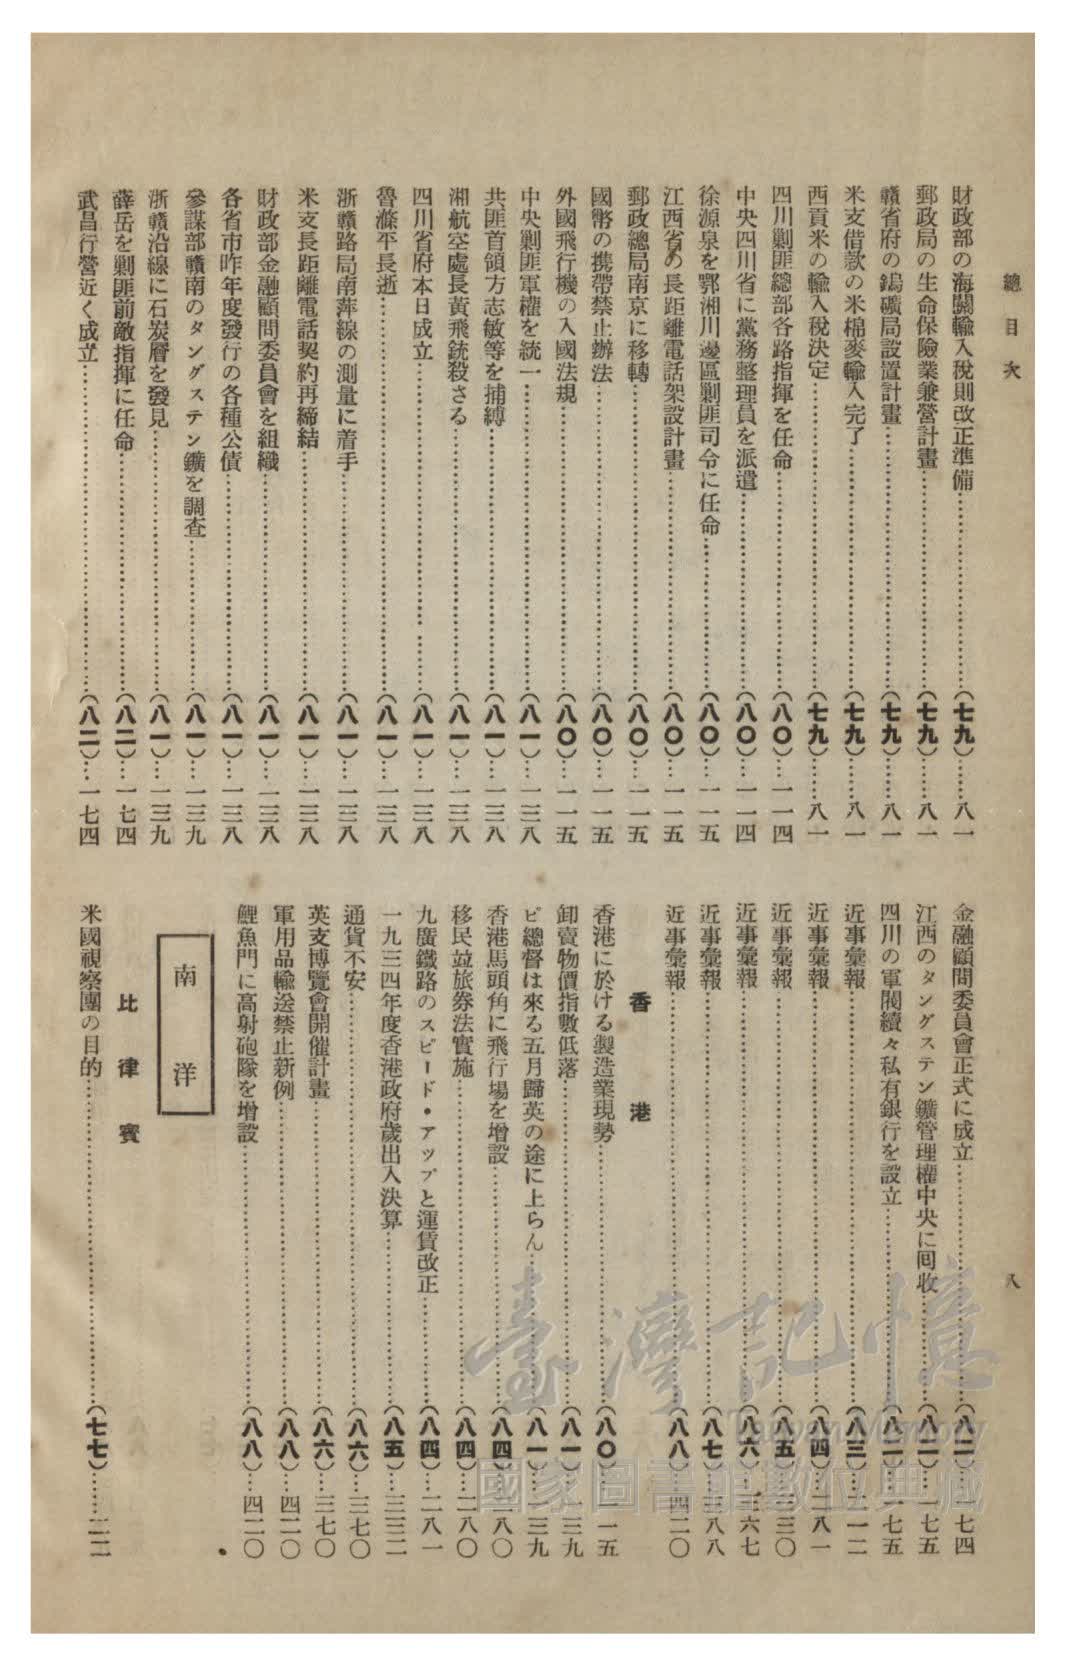 總目次
八
財政部の海關輸入稅則改正準備……(七九)……八一
郵政局の生命保險業兼營計畫……(七九)……八一
贛省府の鎢礦局設置計畫……(七九)……八一
米支借款の米棉麥輸入完了……(七九)……八一
西貢米の輸入稅決定……(七九)……八一
四川剿匪總部各路指揮を任命……(八〇)…一一四
中央四川省に黨務整理員を派遣……(八〇)…一一四
徐源泉を鄂湘川邊區剿匪司令に任命……(八〇)…一一五
江西省の長距離電話架設計畫……(八〇)…一一五
郵政總局南京に移轉……(八〇)…一一五
國幣の携帶禁止辦法……(八〇)…一一五
外國飛行機の入國法規……(八〇)…一一五
中央剿匪軍權を統一……(八一)…一三八
共匪首領方志敏等を捕縛……(八一)…一三八
湘航空處長黃飛銃殺さる……(八一)…一三八
四川省府本日成立……(八一)…一三八
魯滌平長逝……(八一)…一三八
浙贛路局南萍線の測量に着手……(八一)…一三八
米支長距離電話契約再締結……(八一)…一三八
財政部金融顧問委員會を組織……(八一)…一三八
各省市昨年度發行の各種公債……(八一)…一三八
參謀部贛南のタングステン鑛を調查……(八一)…一三九
浙贛沿線に石炭層を發見……(八一)…一三九
薛岳を剿匪前敵指揮に任命……(八二)…一七四
武昌行營近く成立……(八二)…一七四
金融顧問委員會正式に成立……(八二)…一七四
江西のタングステン鑛管理權中央に囘收……(八二)…一七五
四川の軍閥續々私有銀行を設立……(八二)…一七五
近事彙報……(八三)…二一二
近事彙報……(八四)…二八一
近事彙報……(八五)…三三〇
近事彙報……(八六)…三六七
近事彙報……(八七)…三八八
近事彙報……(八八)…四二〇
香港
香港に於ける製造業現勢……(八〇)…一一五
卸賣物價指數低落……(八一)…一三九
ピ總督は來る五月歸英の途に上らん……(八一)…一三九
香港馬頭角に飛行場を增設……(八四)…二八〇
移民並旅券法實施……(八四)…二八〇
九廣鐵路のスピード・アップと運賃改正……(八四)…二八一
一九三四年度香港政府歲出入決算……(八五)…三三二
通貨不安……(八六)…三七〇
英支博覽會開催計畫……(八六)…三七〇
軍用品輸送禁止新例……(八八)…四二〇
鯉魚門に高射砲隊を增設……(八八)…四二〇
南洋
比律賓
米國視察團の目的……(七七)……二二
臺灣記憶
Taiwan Memory
國家圖書館數位典藏